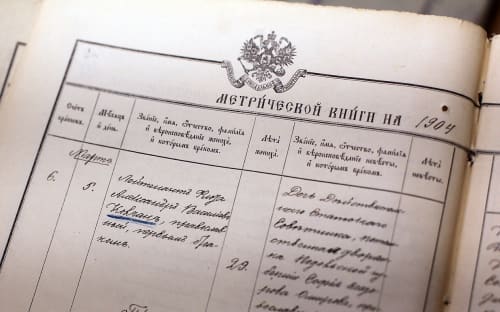 МЕТРИЧЕСКОЙ КНИГИ НА 1904
Счетъ
браковъ.
Мѣсяцъ
и день.
Званіе, имя, отчество, фамилія
и вѣроисповѣданіе жениха,
и которымъ бракомъ.
Лѣта
жениха.
Званіе, имя, отчество, фамилія
и вѣроисповѣданіе невѣсты,
и которымъ бракомъ.
Лѣта
невѣсты.
Марта
6.
5.
Лейтенантъ
Александръ Васильевъ
Колчакъ, православ-
ный, первымъ бра-
комъ.
29.
Дочь Дѣйствитель-
наго Статскаго
Совѣтника, потом-
ственная дворян-
ка Подольской гу-
берніи Софія
Омирова, пра-